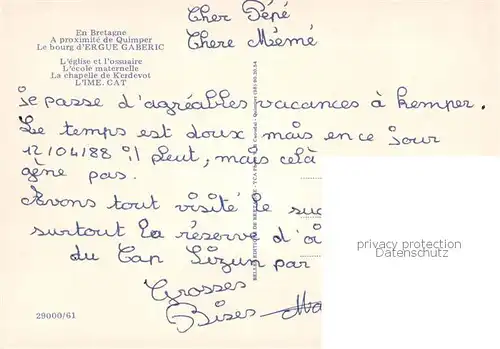 En Bretagne
A proximité de Quimper
Le bourg d'ERGUE GABERIC
L'église et l'ossuaire
L'école maternelle
La chapelle de Kerdevot
L'IME. CAT
Cher Pépé
Chere Mémé
je passe d'agréables vacances à kemper.
Le temps est doux mais en ce jour
12/04/88 il pleut, mais celà
gène pas.
Avons tout visité le sud
surtout la réserve d'oi
du Cap Sizun par
Grosses
Bises Ma
29000/61
privacy protection
Datenschutz